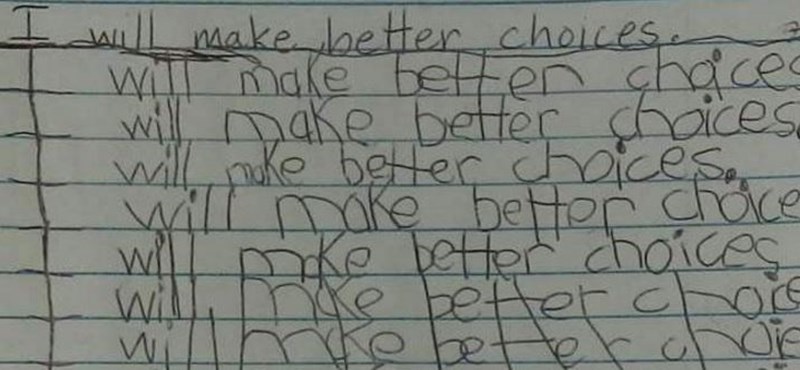 I will make better choices.
I will make better choices
I will make better choices.
I will make better choices.
I will make better choice
I will make better choices
I will make better choic
I will make better choic